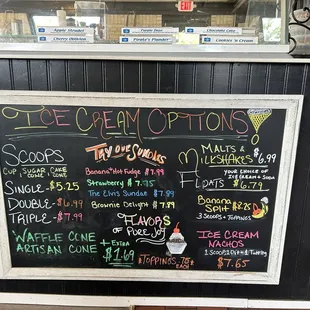 EXIT
Apple Strudel
Cherry Obsession
Pirate's Plunder
Cookies 'n Cream
ICE CREAM OPTIONS!
SCOOPS
CUP, SUGAR CONE, CAKE CONE
SINGLE - $5.25
DOUBLE - $6.99
TRIPLE - $7.99
WAFFLE CONE
ARTISAN CONE
+ EXTRA
$1.69
TRY OUR SUNDAES
Banana Hot Fudge $7.99
Strawberry $7.75
The Elvis Sundae $7.89
Brownie Delight $7.99
FLAVORS OF PURE JOY
TOPPINGS .75¢ EACH
MALTS & MILKSHAKES $6.99
FLOATS YOUR CHOICE OF ICE CREAM + SODA $6.79
Banana Split $8.25
3 SCOOPS + TOPPINGS
ICE CREAM NACHOS
$7.65